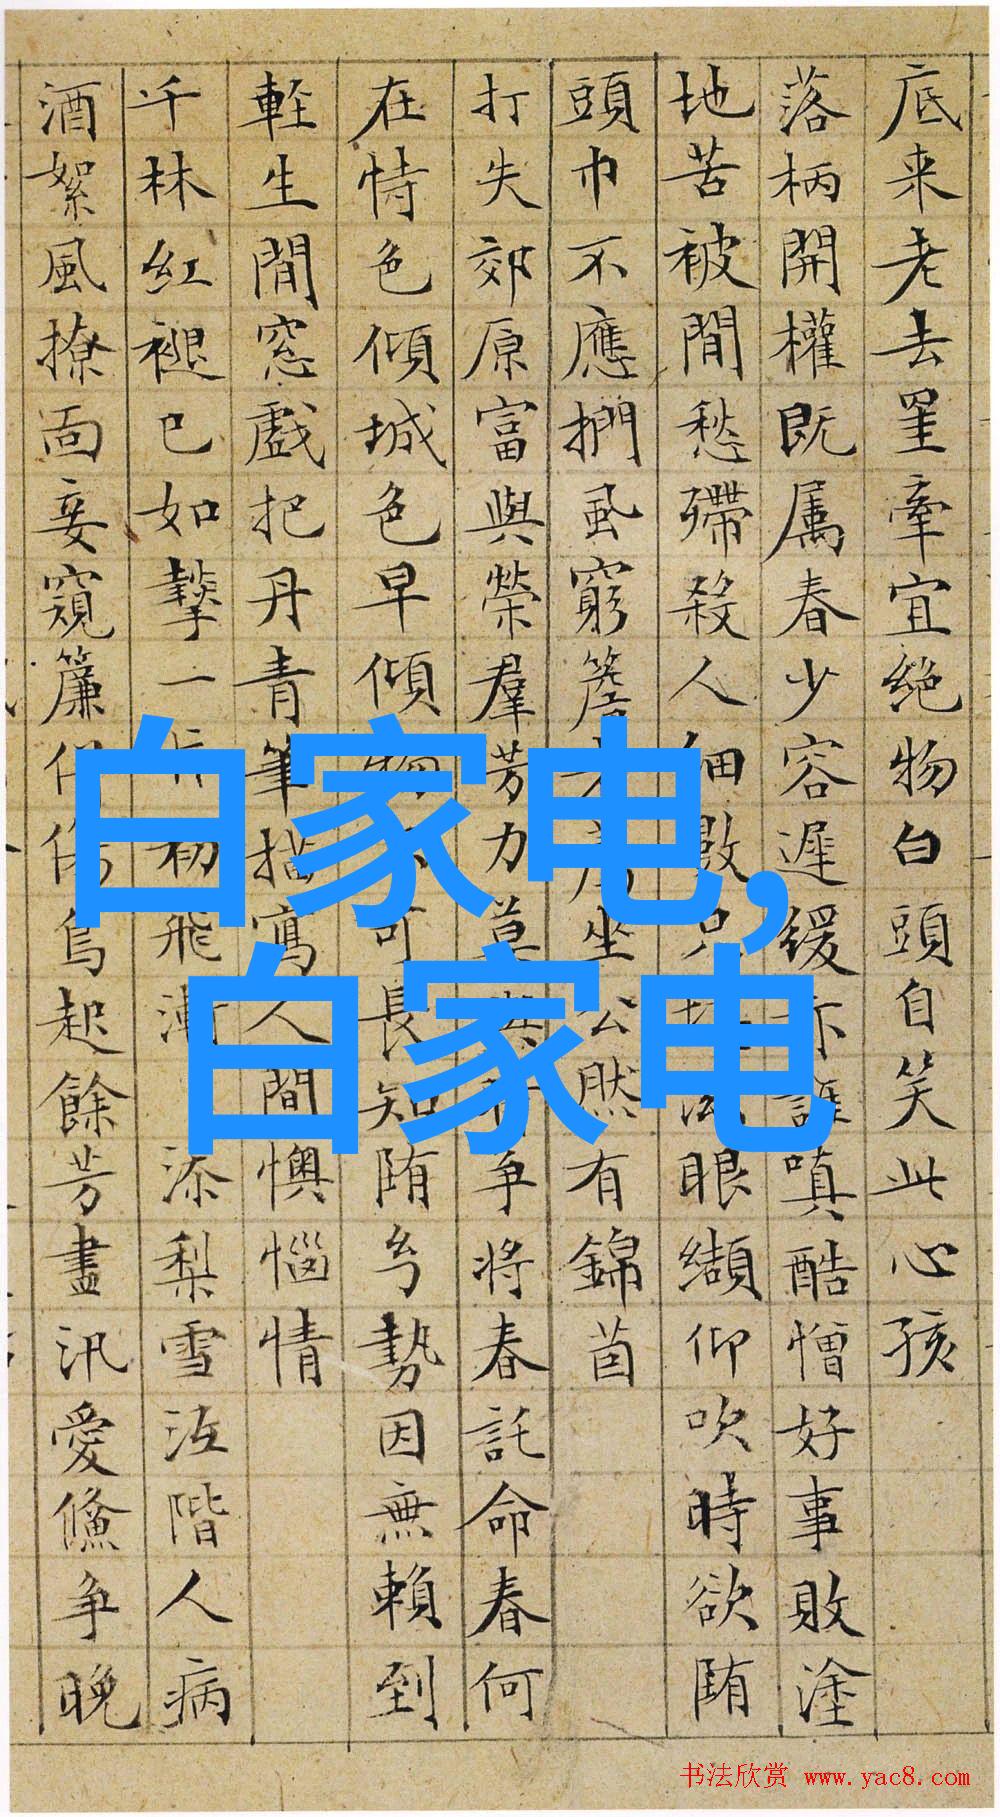 底来老去罣牽宜絶物白頭自笑此心孩
落柄開權既属春少容遲緩亦誰嗔酷憎好事敗塗
地苦被閒愁殢殺人細數只眼纈仰吹時欲堕
頭巾不應捫虱窮簷坐公然有錦茵
打失郊原富與榮羣芳力莫争将春託命春何
在恃色傾城色早傾物可長知堕勢因無賴到
軽生閒窓戲把丹青筆描寫人間懊惱情
千林紅褪已如一片初飛漸添梨雪冱階人病
酒絮風撩面妾窺簾鳥起餘芳盡汛愛争晚
白家电,
白家电
书法欣赏 www.yac8.com